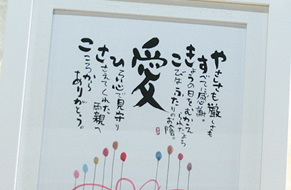 やさしさも厳しさも
すべて感謝。
きょうの日をむかえられたのも
こびはふたりのお陰。
愛
ひろい心で見守り
ささえてくれた両親へ
こころから
ありがとう。